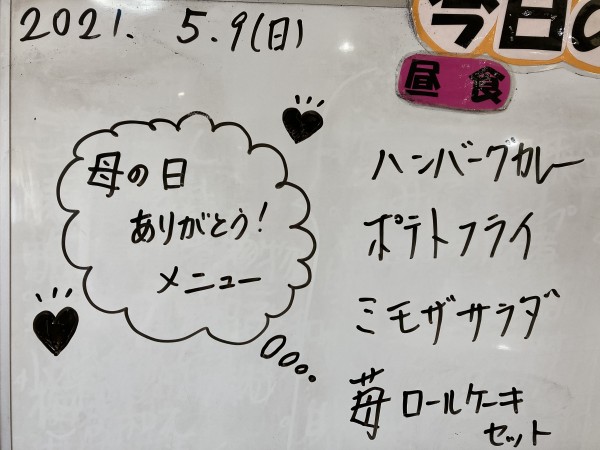 2021. 5.9(日)
今日の
昼食
母の日
ありがとう!
メニュー
ハンバーグカレー
ポテトフライ
ミモザサラダ
苺ロールケーキ
セット